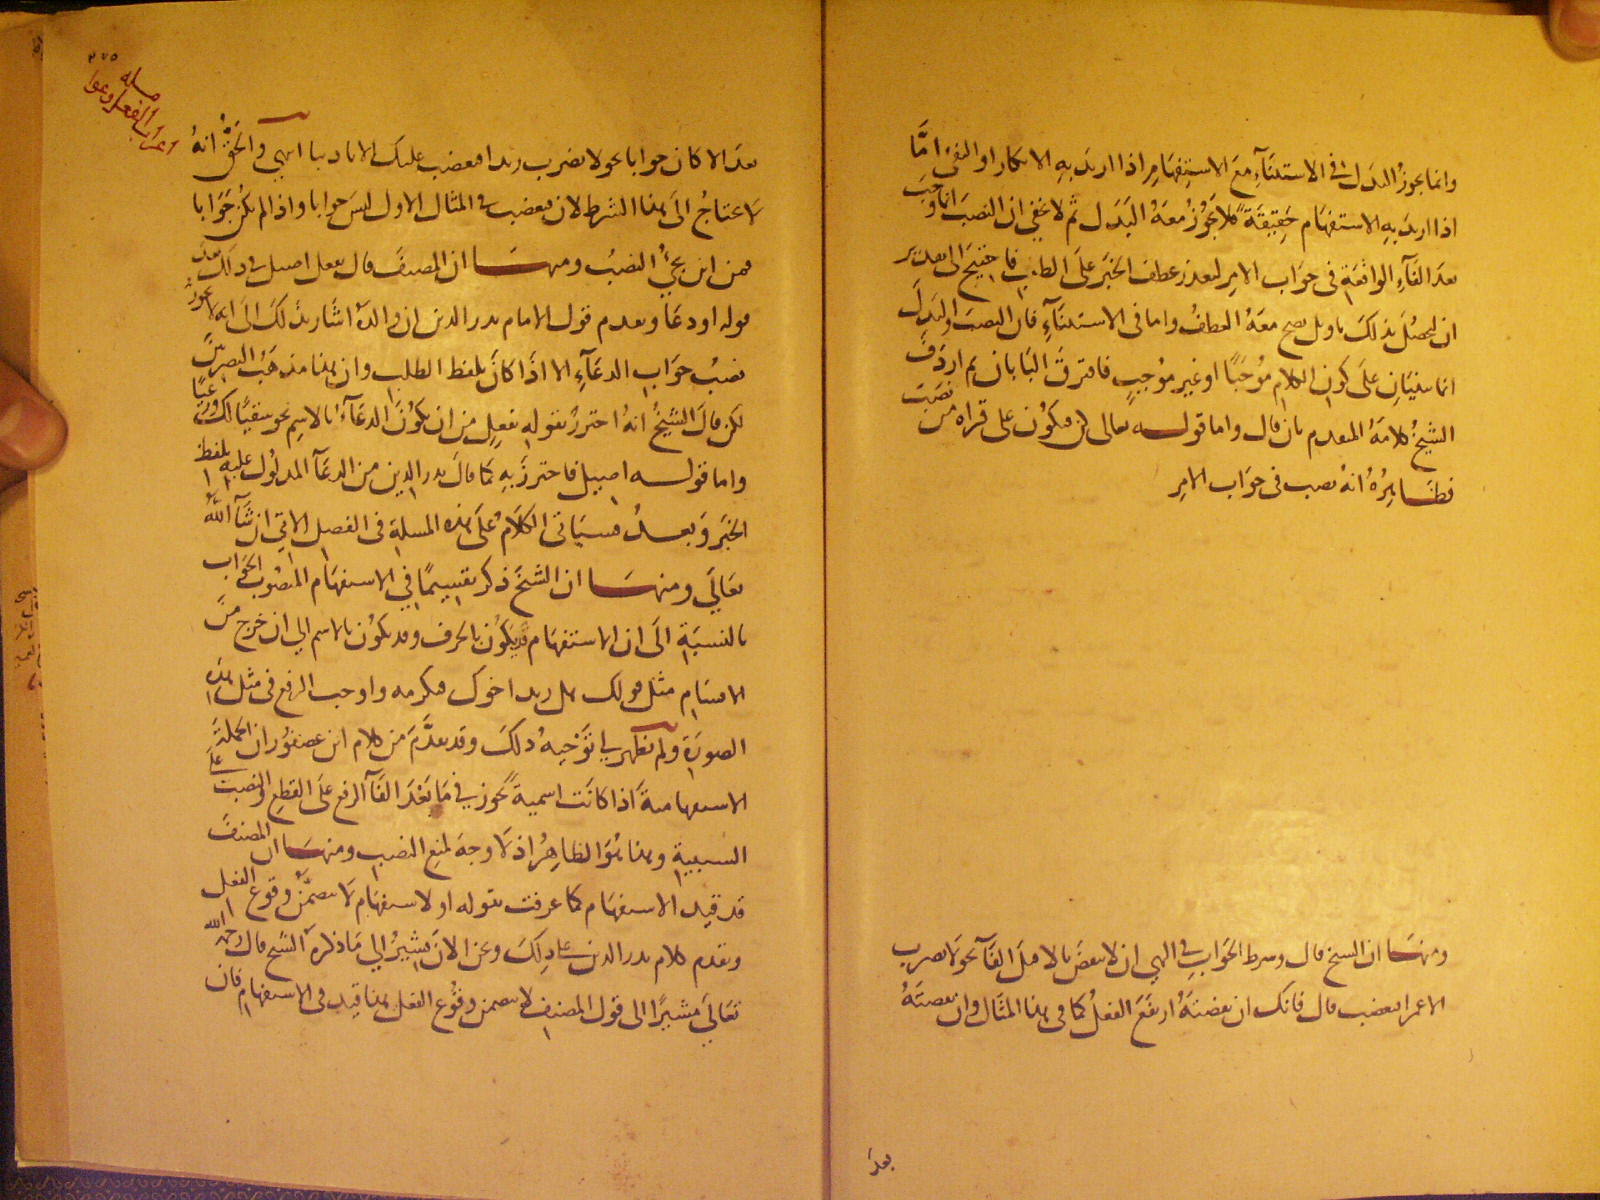 وانما يجوز البدل في الاستثناء مع الاستفهام اذا اريد به الانكار او النفى امّا
اذا اريد به الاستفهام حقيقة فلا يجوز معه البدل ثم لا يخفي ان النصب انما وجب
بعد الفاء الواقعة فى جواب الامر لتعذر عطف الخبر على الطلب فاحتيج الى تقدير
ان ليحصل بذلك تاويل يصح معه العطف واما فى الاستثناء فان النصب والبدل
انما يبنيان على كون الكلام موجبا او غير موجب فافترق البابان ثم اردف
الشيخ كلامه المتقدم بان قال واما قوله تعالى كن فيكون على قراه من نصب
فظاهره انه نصب فى جواب الامر
ومنها ان الشيخ قال وشرط الجواب في النهي ان لا ينقض بالا قبل الفاء نحو لا تضرب
الا عمرا فيغضب قال فانك ان نقضته ارتفع الفعل كما فى هذا المثال وان نقضته
بعد
٢٧٥
مسله
اعراب الفعل وعوا
بعد الا كان جوابا نحو لا تضرب زيدا فيغضب عليك الا تاديبا انتهي والحق انه
لا يحتاج الى هذا الشرط لان فيغضب فى المثال الاول ليس جوابا واذا لم يكن جوابا
فمن اين يجيء النصب ومنها ان المصنف قال بفعل اصيل في ذلك بعد
قوله او دعا وتقدم قول الامام بدر الدين ان والده اشار بذلك الى انه لا يجوز
نصب جواب الدعاء الا اذا كان بلفظ الطلب وان هذا مذهب البصريين
لكن قال الشيخ انه احترز بقوله بفعل من ان يكون الدعاء بالاسم نحو سقيا لك ورعيا
واما قوله اصيل فاحترز به كما قال بدر الدين من الدعا المدلول عليه بلفظ
الخبر وبعد فسياتى الكلام على هذه المسلة فى الفصل الاتى ان شاء الله
تعالي ومنها ان الشيخ ذكر تقسيما في الاستفهام المنصوب الجواب
بالنسبة الى ان الاستفهام قد يكون بالحرف وقد يكون بالاسم الي ان خرج من
الاقسام مثل قولك هل زيد اخوك فنكرمه واوجب الرفع فى مثل هذه
الصورة ولم يظهر لي توجيه ذلك وقد تقدم من كلام ابن عصفور ان الجملة
الاستفهامية اذا كانت اسمية يجوز في ما بعد الفا الرفع على القطع والنصب على
السببية وهذا هو الظاهر اذ لا وجه لمنع النصب ومنها ان المصنف
قد قيد الاستفهام كما عرفت بقوله او لاستفهام لا يتضمن وقوع الفعل
وتقدم كلام بدر الدين على ذلك ونحن الان نشير الي ما ذكره الشيخ قال رحمه الله
تعالي مشيرا الى قول المصنف لا يتضمن وقوع الفعل هذا قيد فى الاستفهام فان